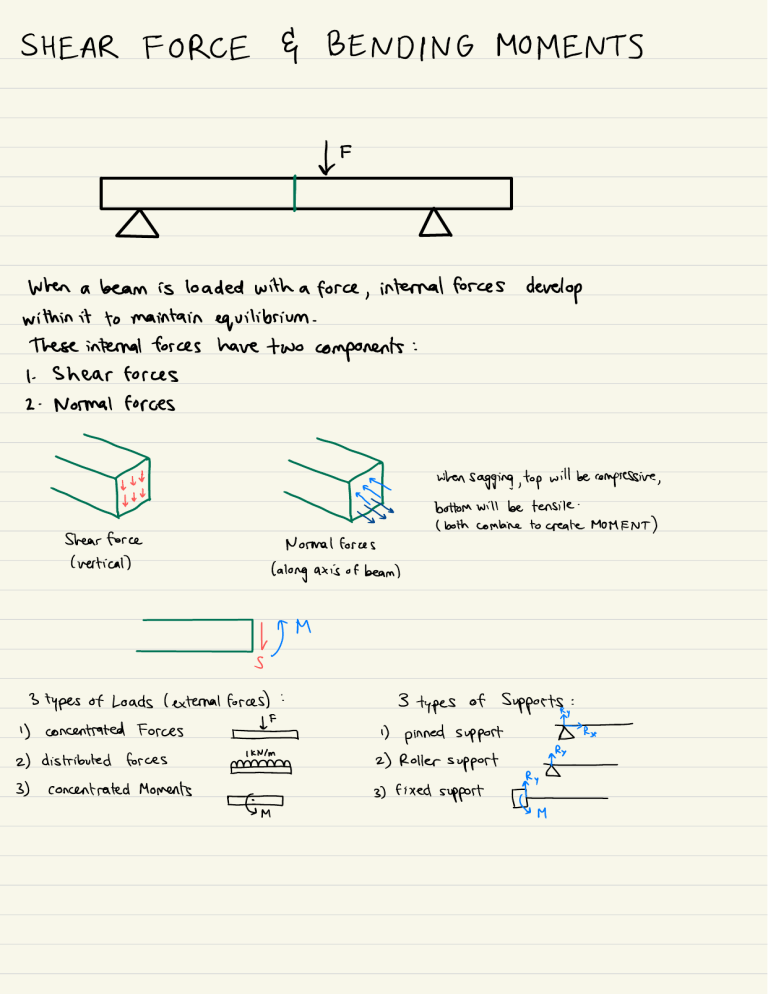 SHEAR FORCE & BENDING MOMENTS
F
When a beam is loaded with a force, internal forces develop
within it to maintain equilibrium.
These internal forces have two components:
1. Shear forces
2. Normal forces
when sagging, top will be compressive,
bottom will be tensile.
(both combine to create MOMENT)
Shear force
(vertical)
Normal forces
(along axis of beam)
M
S
3 types of Loads (external forces):
F
1) concentrated Forces
2) distributed forces
1kN/m
3) concentrated Moments
M
3 types of Supports:
Ry
1) pinned support
Rx
2) Roller support
Ry
3) fixed support
Ry
M